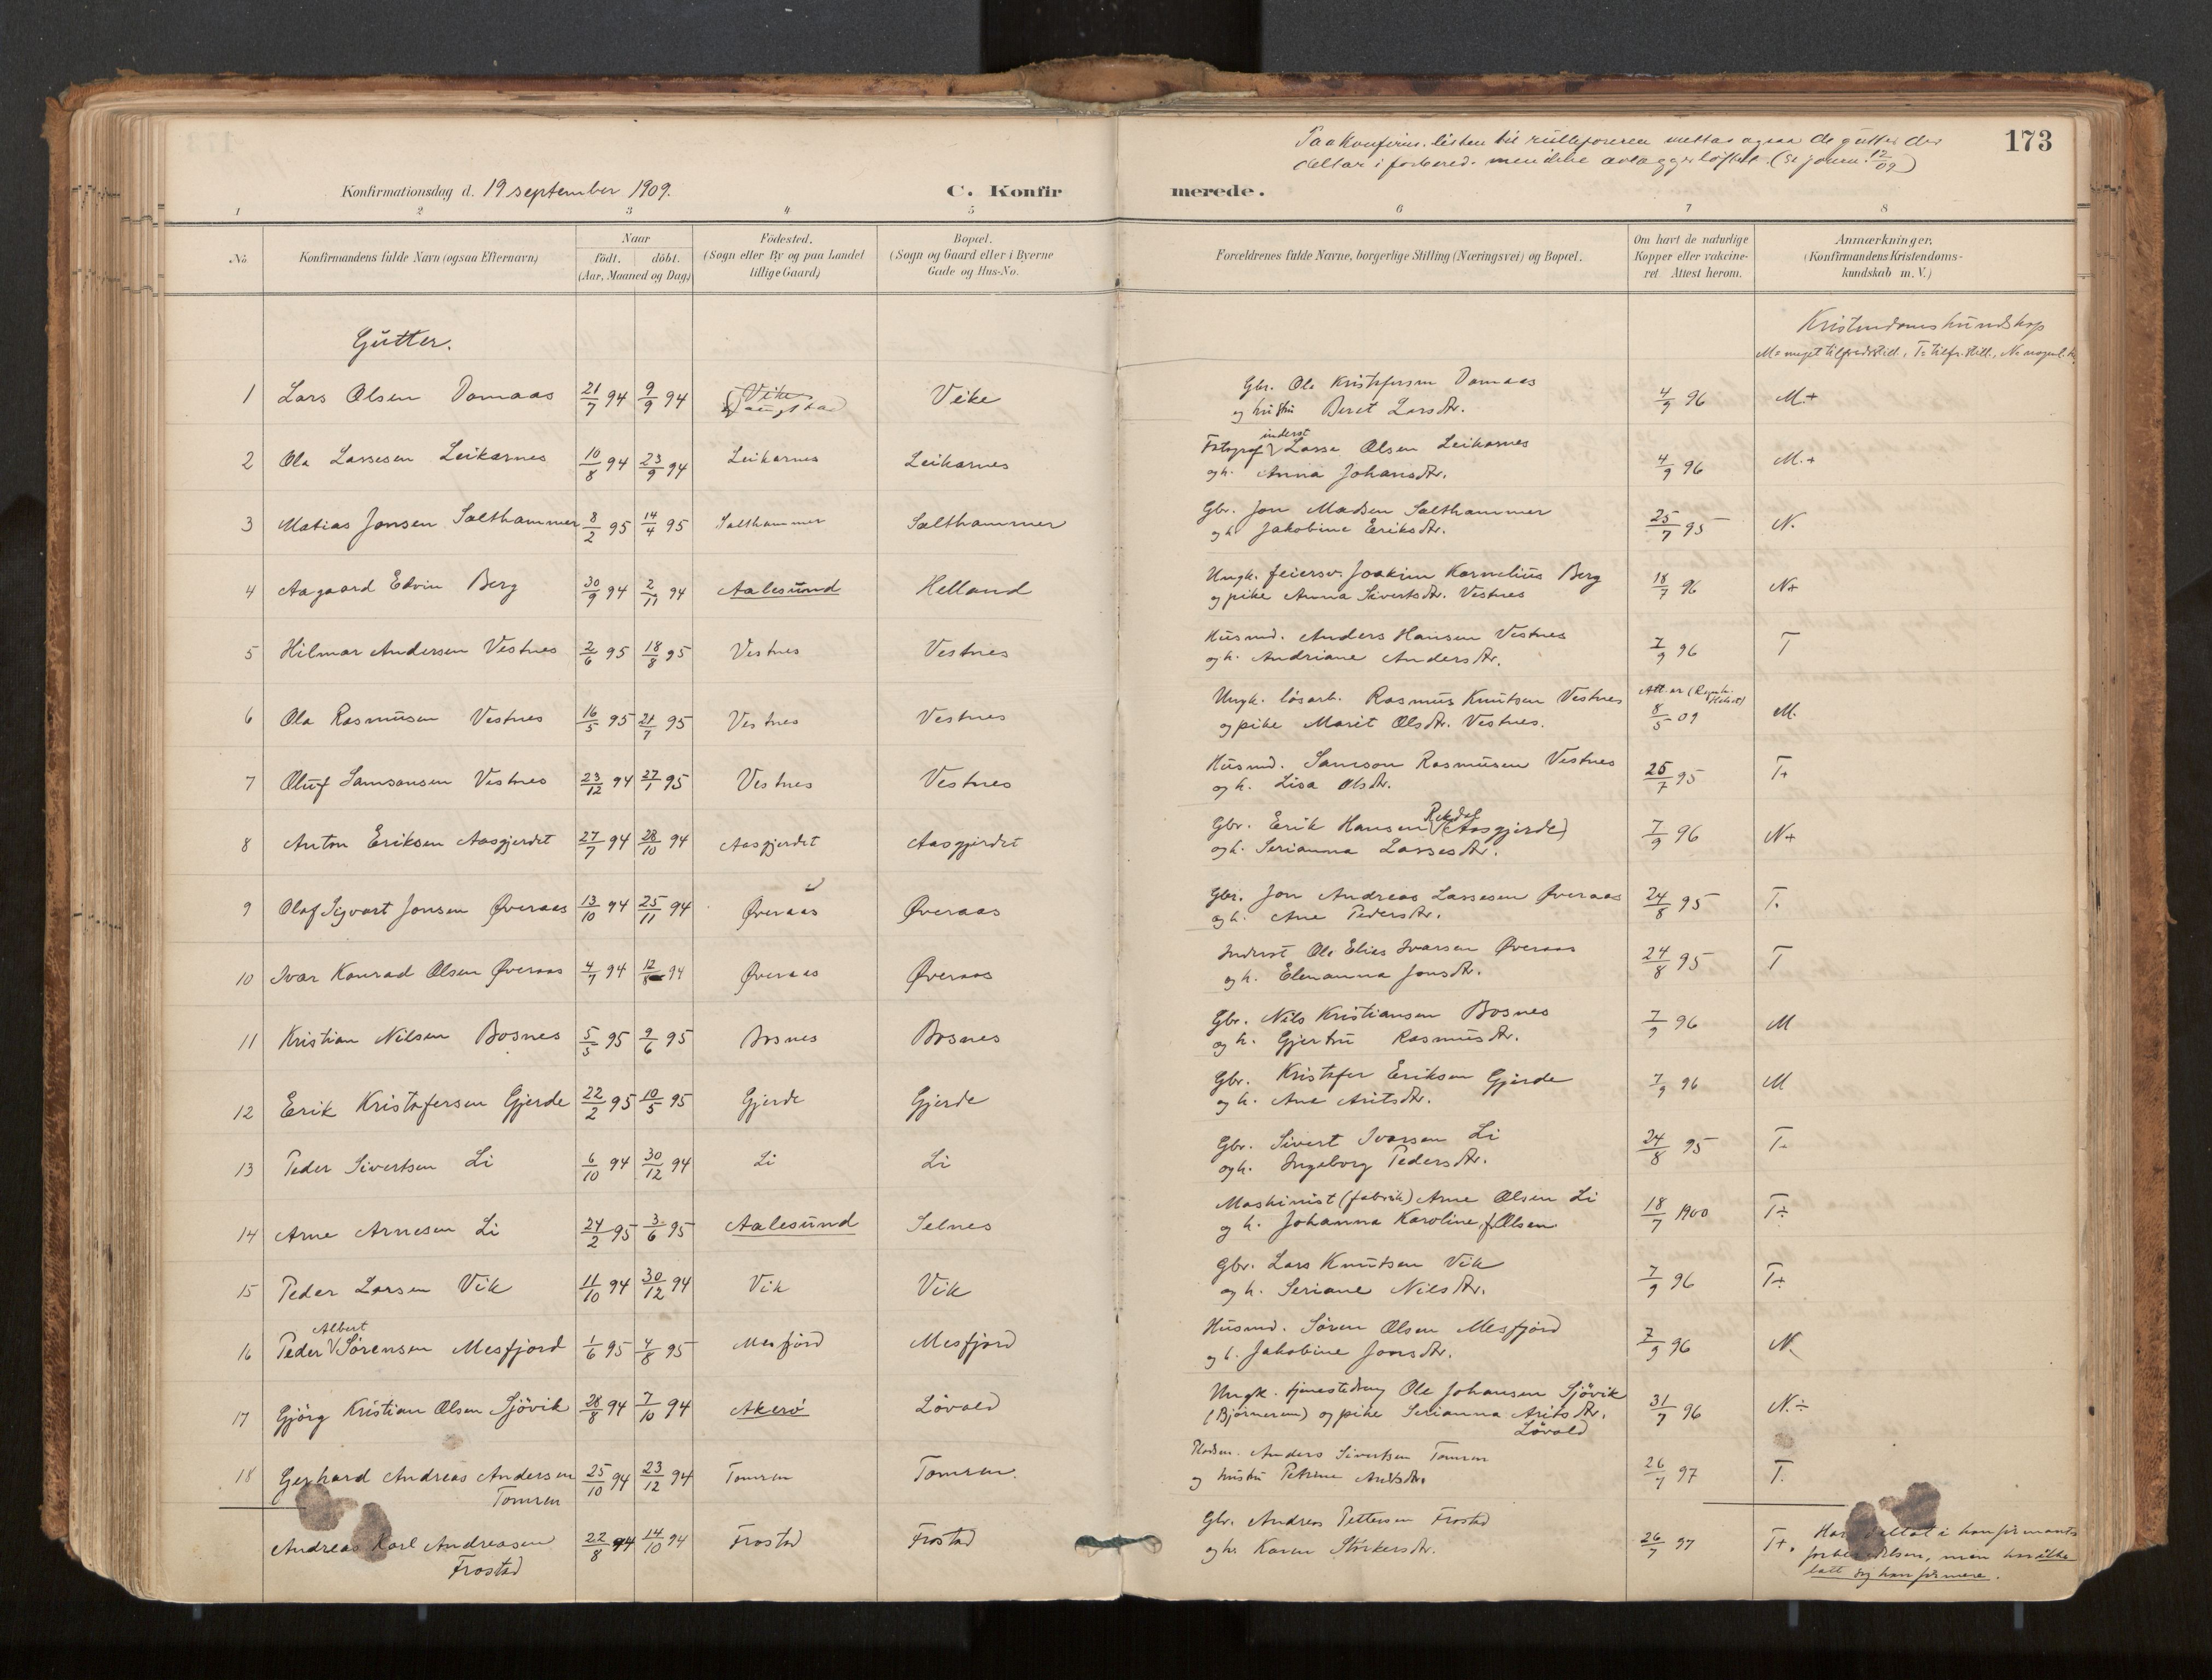 173
Paa konfirm. listen til rulleføreren mettas ogsaa de gutter der
deltar i forbered. men ikke avlægger løftet. (se journ. 12/09)
Konfirmationsdag d. 19 september 1909.
C. Konfirmerede.
1 2 3 4 5 6 7 8
No. Konfirmandens fulde Navn (ogsaa Efternavn) Naar födt. döbt. (Aar, Maaned og Dag) Födested. (Sogn eller By og paa Landet tillige Gaard) Bopæl. (Sogn og Gaard eller i Byerne Gade og Hus-No. Forældrenes fulde Navne, borgerlige Stilling (Næringsvei) og Bopæl. Om havt de naturlige Kopper eller vakcineret. Attest herom. Anmærkninger. (Konfirmandens Kristendomskundskab m. V.)
Gutter.
Kristendomskundskap
M = meget tilfredsstill., T = tilfr.still., N = nogenl.
1 Lars Olsen Damaas 21/7 94 9/9 94 Vike Veike Gbr. Ola Kristofersen Damaas 4/9 96 M.+
og hustru Beret Larsdtr.
2 Ola Lassesen Leikarnes 10/8 94 23/9 94 Leikarnes Leikarnes Fotograf inderst Lasse Olsen Leikarnes 4/9 96 M.+
og h. Anna Johansdtr.
3 Matias Jonsen Salthammer 8/2 95 14/4 95 Salthammer Salthammer Gbr. Jon Madsen Salthammer 25/7 95 N.
og h. Jakobine Eriksdtr.
4 Aagaard Edvin Berg 30/9 94 2/11 94 Aalesund Helland Ungk. feiersv. Joakim Kornelius Berg 18/7 96 N+
og pike Anna Sivertsdtr. Vestnes
5 Hilmar Andersen Vestnes 2/6 95 18/8 95 Vestnes Vestnes Husmd. Anders Hansen Vestnes 7/9 96 T
og h. Andriane Andersdtr.
6 Ola Rasmusen Vestnes 16/5 95 21/7 95 Vestnes Vestnes Ungk. løsarb. Rasmus Knutsen Vestnes Att. av 8/5 09 M.
og pike Marit Olsdtr. Vestnes.
7 Oluf Samsonsen Vestnes 23/12 94 27/1 95 Vestnes Vestnes Husmd. Samson Rasmusen Vestnes 25/7 95 T+
og h. Lisa Olsdtr.
8 Anton Eriksen Aasgjerdet 27/7 94 28/10 94 Aasgjerdet Aasgjerdet Gbr. Erik Hansen Rekdal (Aasgjerde) 7/9 96 N+
og h. Serianna Lassesdtr.
9 Olaf Sigvart Jonsen Øveraas 13/10 94 25/11 94 Øveraas Øveraas Gbr. Jon Andreas Lassesen Øveraas 24/8 95 T.
og h. Ane Pedersdtr.
10 Ivar Konrad Olsen Øveraas 4/7 94 12/8 94 Øveraas Øveraas Inderst Ole Elias Ivarsen Øveraas 24/8 95 T
og h. Elenanna Jonsdtr.
11 Kristian Nilsen Bosnes 5/5 95 9/6 95 Bosnes Bosnes Gbr. Nils Kristiansen Bosnes 7/9 96 M
og h. Gjertru Rasmusdtr.
12 Erik Kristofersen Gjerde 22/2 95 10/5 95 Gjerde Gjerde Gbr. Kristofer Eriksen Gjerde 7/9 96 M
og h. Ane Aritsdtr.
13 Peder Sivertsen Li 6/10 94 30/12 94 Li Li Gbr. Sivert Ivarsen Li 24/8 95 T.
og h. Ingeborg Pedersdtr.
14 Arne Arnesen Li 24/2 95 3/6 95 Aalesund Selnes Maskinist (fabrik) Arne Olsen Li 18/7 1900 T÷
og h. Johanna Karoline f. Olsen
15 Peder Larsen Vik 11/10 94 30/12 94 Vik Vik Gbr. Lars Knutsen Vik 7/9 96 T+
og h. Seriane Nilsdtr.
16 Peder Albert Sörensen Mesfjord 1/6 95 4/8 95 Mesfjord Mesfjord Husmd. Sören Olsen Mesfjord 7/9 96 N.
og h. Jakobine Jonsdtr.
17 Gjörg Kristian Olsen Sjövik 28/8 94 7/10 94 Akerö Lövold Ungk. tjenestedreng Ole Johansen Sjövik 31/7 96 N.÷
(Bjørnerem) og pike Serianna Aritsdtr.
Lövold
18 Gerhard Andreas Andersen 25/10 94 23/12 94 Tomren Tomren. Pladsm. Anders Sivertsen Tomren 26/7 97 T.
Tomren og hustru Petrine Aritsdtr.
Andreas Karl Andreasen 22/8 94 14/10 94 Frostad Frostad Gbr. Andreas Pettersen Frostad 26/7 97 T+. Har deltat i konfirmant-
Frostad og h. Karen Störkersdtr. forberedelsen, men har ikke
latt sig konfirmere.